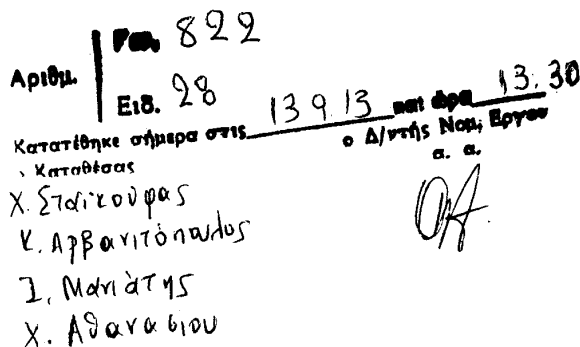 Αριθμ.
Γεν. 822
Ειδ. 28
Κατατέθηκε σήμερα στις 13 9.13 και ώρα 13:30
ο Δ/ντής Νομ. Εργου
α. α.
Καταθέσας
Χ. Σταϊκούρας
Κ. Αρβανιτόπουλος
Ι. Μανιάτης
Χ. Αθανασιου